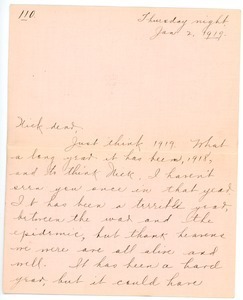 110
Thursday night
Jan 2, 1919.
Nick dear.
Just think 1919. What
a long year it has been, 1918,
and to think Nick, I haven't
seen you once in that year.
It has been a terrible year,
between the war and the
epidemic, but thank heavens
we were all alive and
well. It has been a hard
year, but it could have